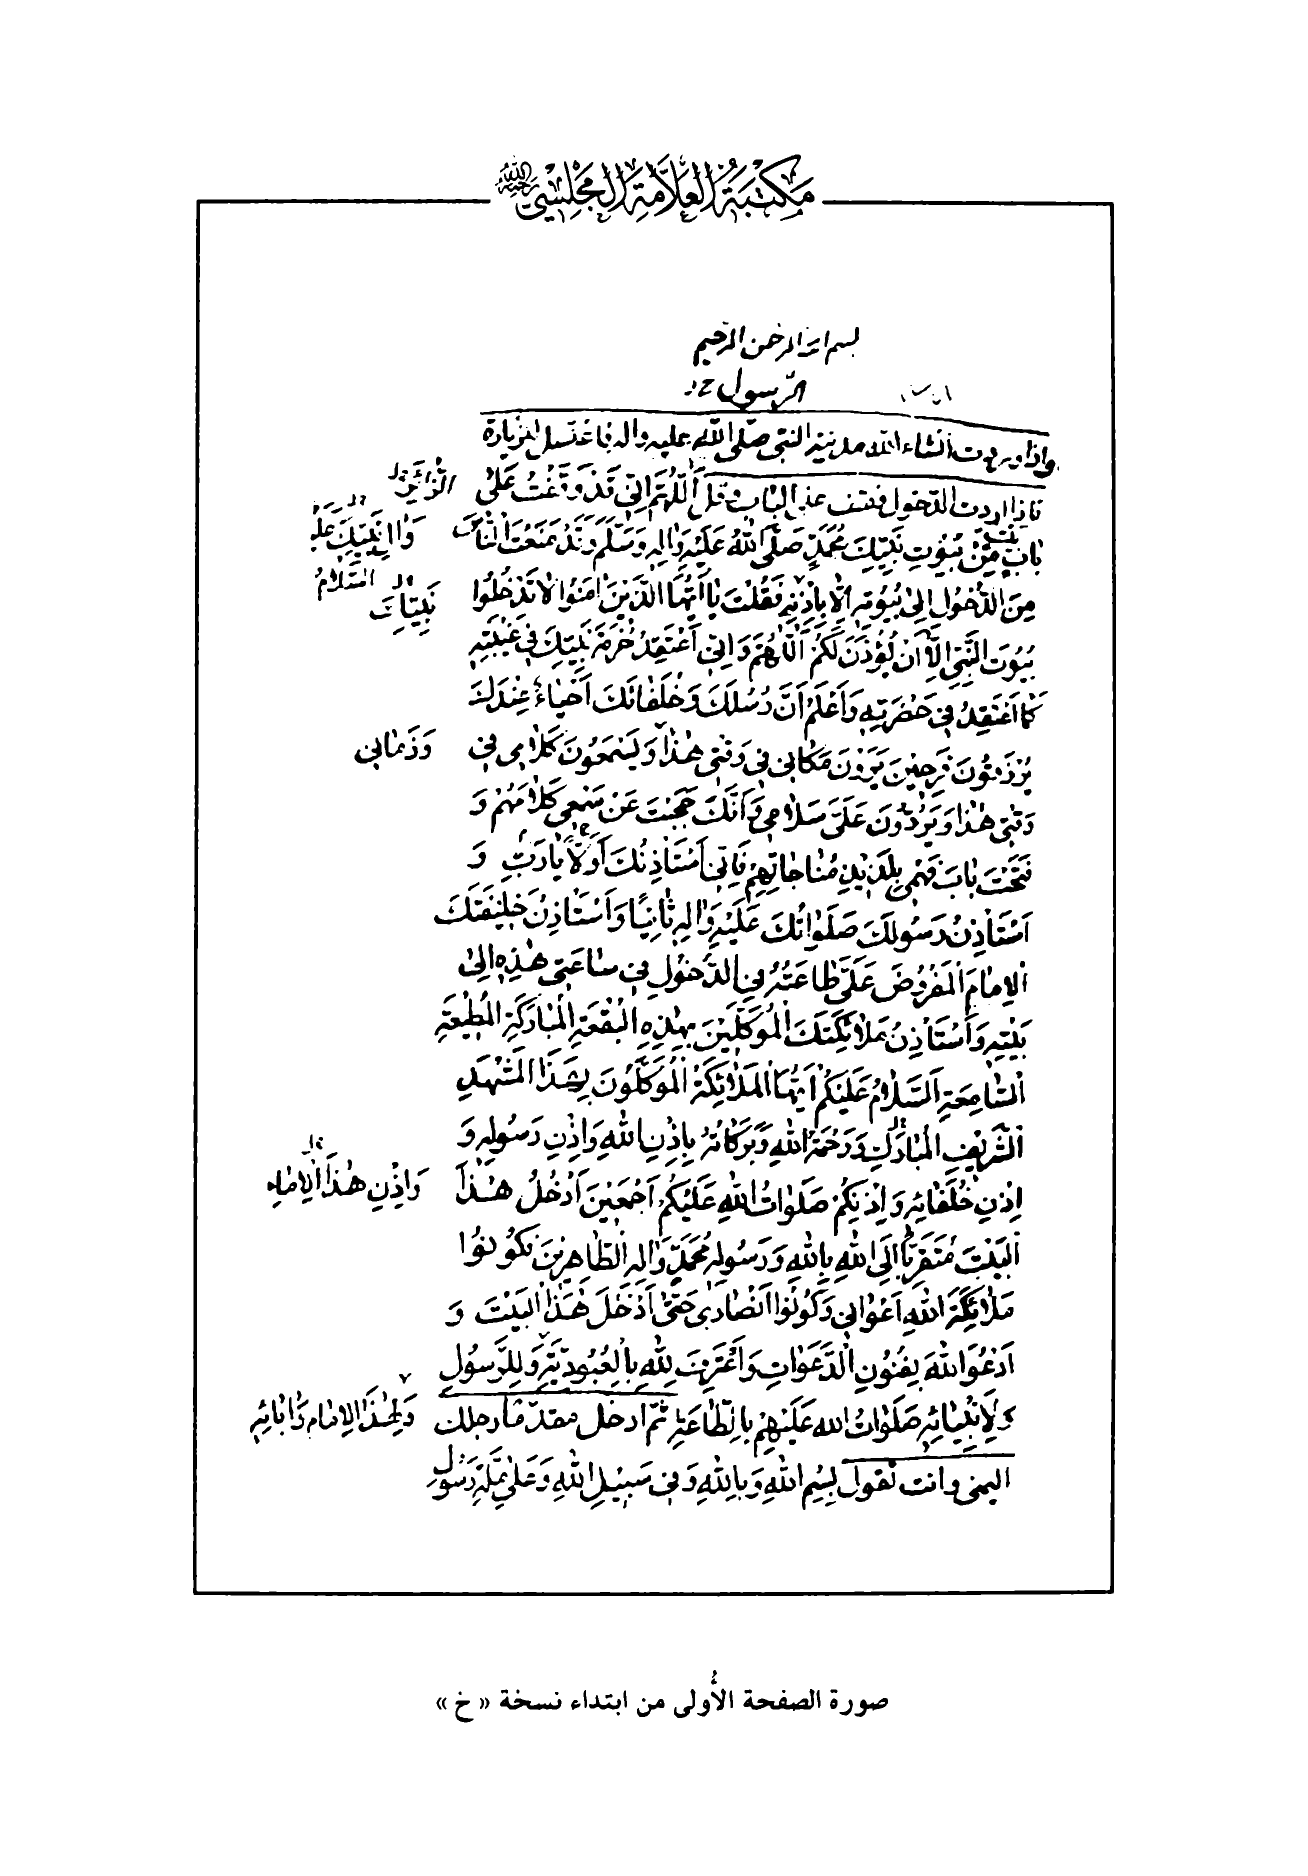 مَكْتَبَةُ العَلَّامَةِ المَجْلِسِيّ رحمه الله
بسم الله الرحمن الرحيم
الرسول
واذا وردت انشاء الله مدينة النبى صلّى اللّه عليه واله فاغتسل للزيارة
فاذا اردت الدخول فقف على الباب وقل اَللّٰهُمَّ اِنّى قَدْ وَقَفْتُ عَلىٰ
بابٍ مِنْ بُيُوتِ نَبِيِّكَ مُحَمَّدٍ صَلَّى اللّٰهُ عَلَيْهِ وَاٰلِهِ وَسَلَّمَ وَقَدْ مَنَعْتَ النّاسَ
وَاٰلِ نَبِيِّكَ عليه السَّلامُ
مِنَ الدُّخُولِ اِلىٰ بُيُوتِهِ اِلّا بِاِذْنِهِ فَقُلْتَ يٰا اَيُّهَا الَّذينَ اٰمَنُوا لاٰ تَدْخُلُوا
نَبِيِّكَ
بُيُوتَ النَّبِىِّ اِلّٰا اَنْ يُؤْذَنَ لَكُمْ اَللّٰهُمَّ وَاِنّى اَعْتَقِدُ حُرْمَةَ نَبِيِّكَ فى غَيْبَتِهِ
كَمٰا اَعْتَقِدُ فى حَضْرَتِهِ وَاَعْلَمُ اَنَّ رُسُلَكَ وَخُلَفٰائَكَ اَحْيٰاءٌ عِنْدَكَ
يُرْزَقُونَ فَرِحينَ يَرَوْنَ مَكٰانى فى وَقْتى هٰذٰا وَيَسْمَعُونَ كَلاٰمى فى
وَزَمٰانى
وَقْتى هٰذٰا وَيَرُدُّونَ عَلَىَّ سَلاٰمى وَاَنَّكَ حَجَبْتَ عَنْ سَمْعى كَلاٰمَهُمْ وَ
فَتَحْتَ بٰابَ فَهْمى بِلَذيذِ مُنٰاجٰاتِهِمْ فَاِنّى اَسْتَاْذِنُكَ اَوَّلاً يٰا رَبِّ وَ
اَسْتَاْذِنُ رَسُولَكَ صَلَوٰاتُكَ عَلَيْهِ وَاٰلِهِ ثٰانِيًا وَاَسْتَاْذِنُ خَليفَتَكَ
الاِمٰامَ الْمَفْرُوضَ عَلَىَّ طٰاعَتُهُ فِى الدُّخُولِ فى سٰاعَتى هٰذِهِ اِلىٰ
بَيْتِهِ وَاَسْتَاْذِنُ مَلاٰئِكَتَكَ الْمُوَكَّلينَ بِهٰذِهِ الْبُقْعَةِ الْمُبٰارَكَةِ الْمُطيعَةِ
السّٰامِعَةِ اَلسَّلاٰمُ عَلَيْكُمْ اَيُّهَا الْمَلاٰئِكَةُ الْمُوَكَّلُونَ بِهٰذَا الْمَشْهَدِ
الشَّريفِ الْمُبٰارَكِ وَرَحْمَةُ اللّٰهِ وَبَرَكٰاتُهُ بِاِذْنِ اللّٰهِ وَاِذْنِ رَسُولِهِ وَ
اِذْنِ خُلَفٰائِهِ وَاِذْنِكُمْ صَلَوٰاتُ اللّٰهِ عَلَيْكُمْ اَجْمَعينَ اَدْخُلُ هٰذَا
وَاِذْنِ هٰذَا الْاِمٰامِ
الْبَيْتَ مُتَقَرِّباً اِلَى اللّٰهِ بِاللّٰهِ وَرَسُولِهِ مُحَمَّدٍ وَاٰلِهِ الطّٰاهِرينَ فَكُونُوا
مَلاٰئِكَةَ اللّٰهِ اَعْوٰانى وَكُونُوا اَنْصٰارى حَتّٰى اَدْخُلَ هٰذَا الْبَيْتَ وَ
اَدْعُوَ اللّٰهَ بِفُنُونِ الدَّعَوٰاتِ وَاَعْتَرِفَ لِلّٰهِ بِالْعُبُودِيَّةِ وَلِلرَّسُولِ
وَلِاَبْنٰائِهِ صَلَوٰاتُ اللهِ عَلَيْهِمْ بِالطّٰاعَةِ ثمّ ادخل مقدّمًا رجلك
وَلِهٰذَا الْاِمٰامِ وَاٰبٰائِهِ
اليمنى وانت تقول بِسْمِ اللّٰهِ وَبِاللّٰهِ وَفى سَبيلِ اللّٰهِ وَعَلىٰ مِلَّةِ رَسُولِ
صورة الصفحة الأُولى من ابتداء نسخة « خ »